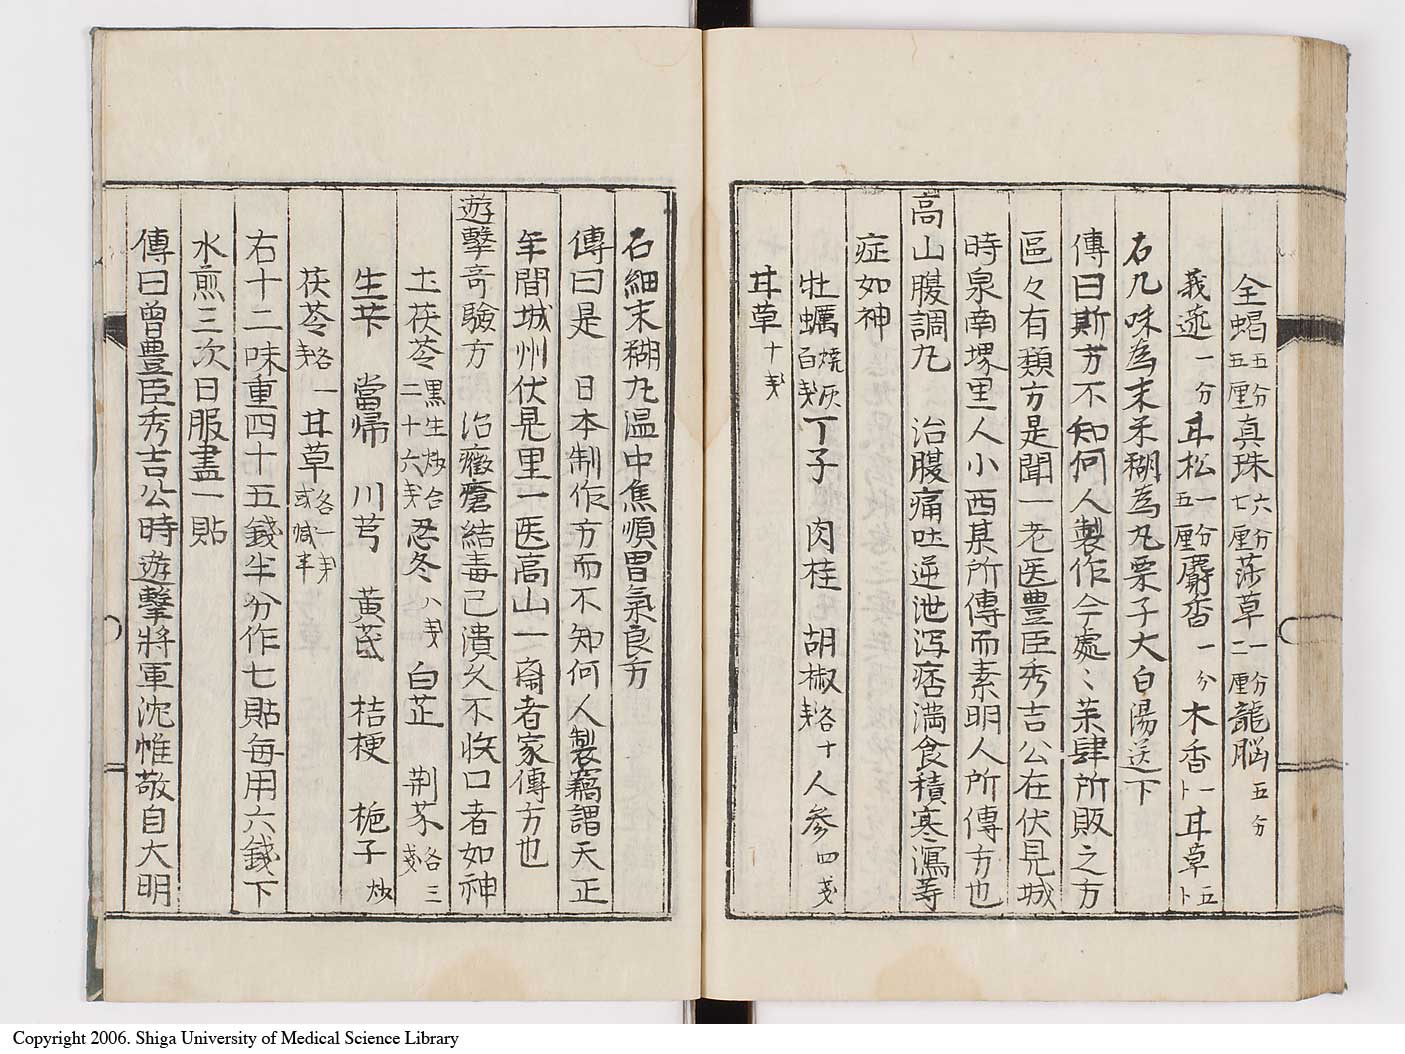 全蝎五分五厘真珠六分七厘莎草一分二厘龍脳五分
莪述一分甘松一分五厘麝香一分木香一卜甘草五卜
右九味為末禾糊為丸栗子大白湯送下
傳曰斯方不知何人製作今處〻薬肆所販之方
區々有類方是聞一老医豊臣秀吉公在伏見城
時泉南堺里人小西某所傳而素明人所傳方也
高山腹調丸 治腹痛吐逆泄泻痞満食積寒瀉等
症如神
牡蠣焼灰百戋丁子 肉桂 胡椒各十戋人参四戋
甘草十戋
右細末糊丸温中焦順胃氣良方
傳曰是 日本制作方而不知何人製竊謂天正
年間城州伏見里一医高山一斎者家傳方也
遊擊奇驗方 治癥瘡結毒已潰久不收口者如神
土茯苓黒生炒合二十六戋忍冬八戋白芷 荆芥各三戋
生芐 當帰 川芎 黄芪 桔梗 梔子炒
茯苓各一戋甘草各一戋或减半
右十二味重四十五錢半分作七貼每用六錢下
水煎三次日服盡一貼
傳曰曾豊臣秀吉公時遊擊將軍沈惟敬自大明
Copyright 2006. Shiga University of Medical Science Library